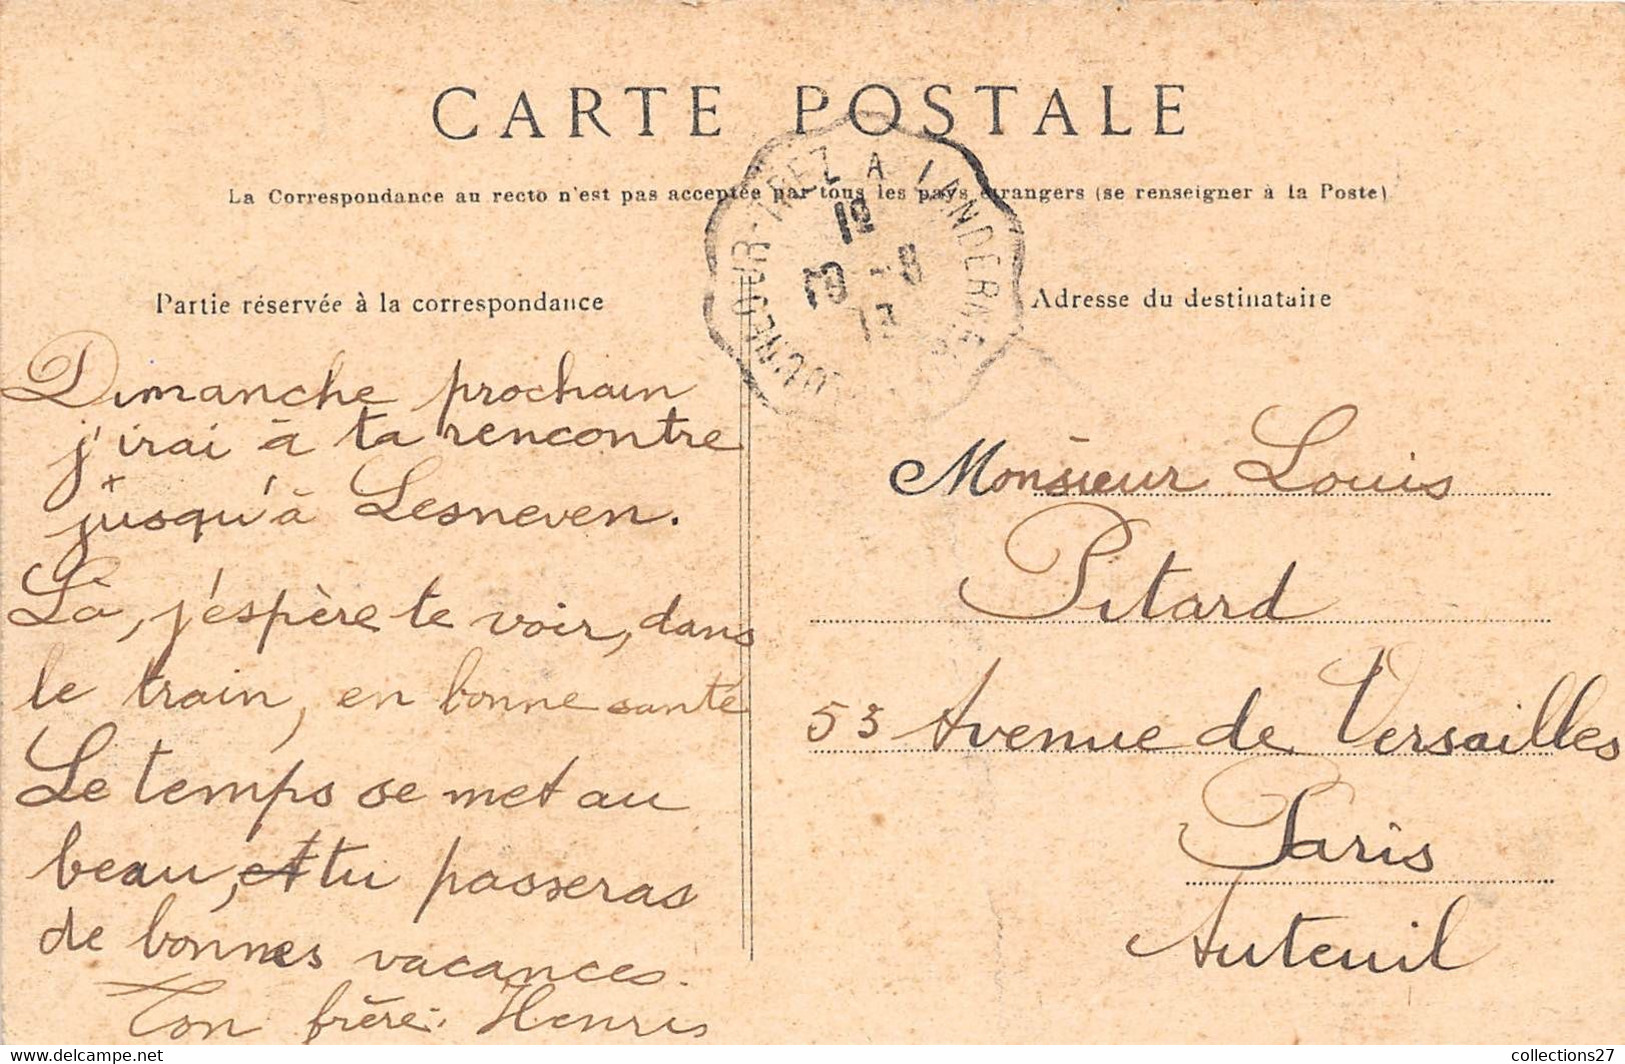 CARTE POSTALE
La Correspondance au recto n'est pas acceptée par tous les pays étrangers (se renseigner à la Poste)
Partie réservée à la correspondance
Adresse du destinataire
Dimanche prochain
j'irai à ta rencontre
jusqu'à Lesneven.
Là, j'espère te voir, dans
le train, en bonne santé
Le temps se met au
beau, et tu passeras
de bonnes vacances.
Ton frère: Henri
Monsieur Louis
Pitard
53 Avenue de Versailles
Paris
Auteuil
TREZ A LANDERNEAU
collections27